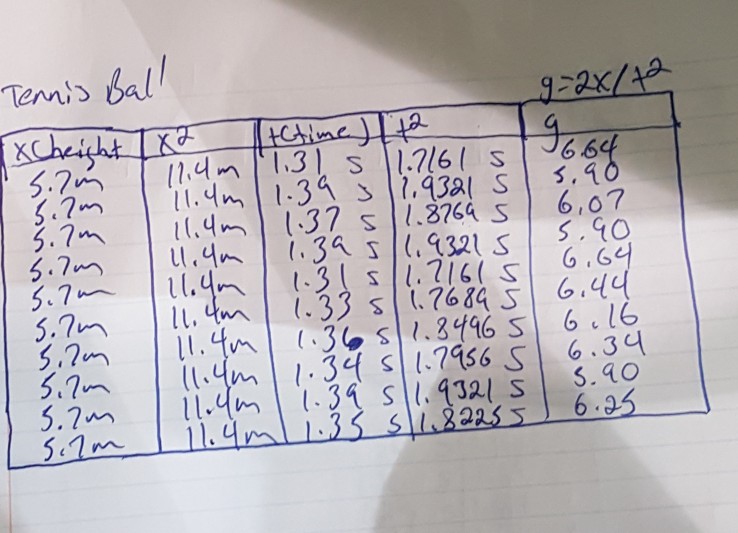 Tennis Ball
g=2x/t2
x(height) x2 t(time) t2 g
5.7m 11.4m 1.31 s 1.7161 s 6.64
5.7m 11.4m 1.39 s 1.9321 s 5.90
5.7m 11.4m 1.37 s 1.8769 s 6.07
5.7m 11.4m 1.39 s 1.9321 s 5.90
5.7m 11.4m 1.31 s 1.7161 s 6.64
5.7m 11.4m 1.33 s 1.7689 s 6.44
5.7m 11.4m 1.36 s 1.8496 s 6.16
5.7m 11.4m 1.34 s 1.7956 s 6.34
5.7m 11.4m 1.39 s 1.9321 s 5.90
5.7m 11.4m 1.35 s 1.8225 s 6.25